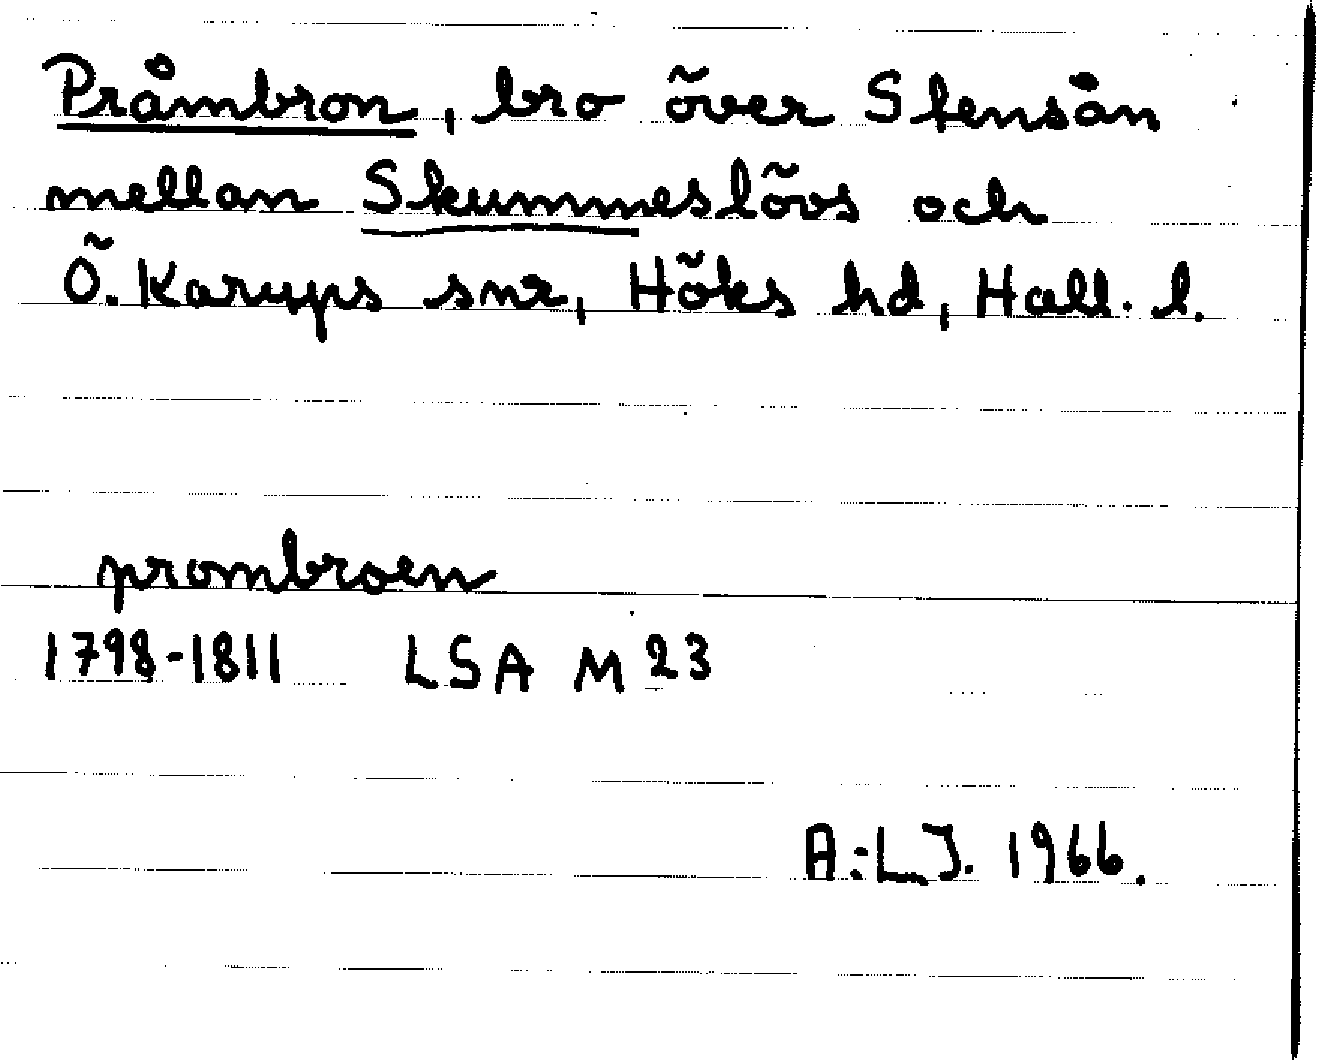 Pråmbron, bro över Stensån
mellan Skummeslövs och
Ö. Karups snr, Höks hd, Hall. l.
prombroen
1798-1811 LSA M 23
A:LJ. 1966.